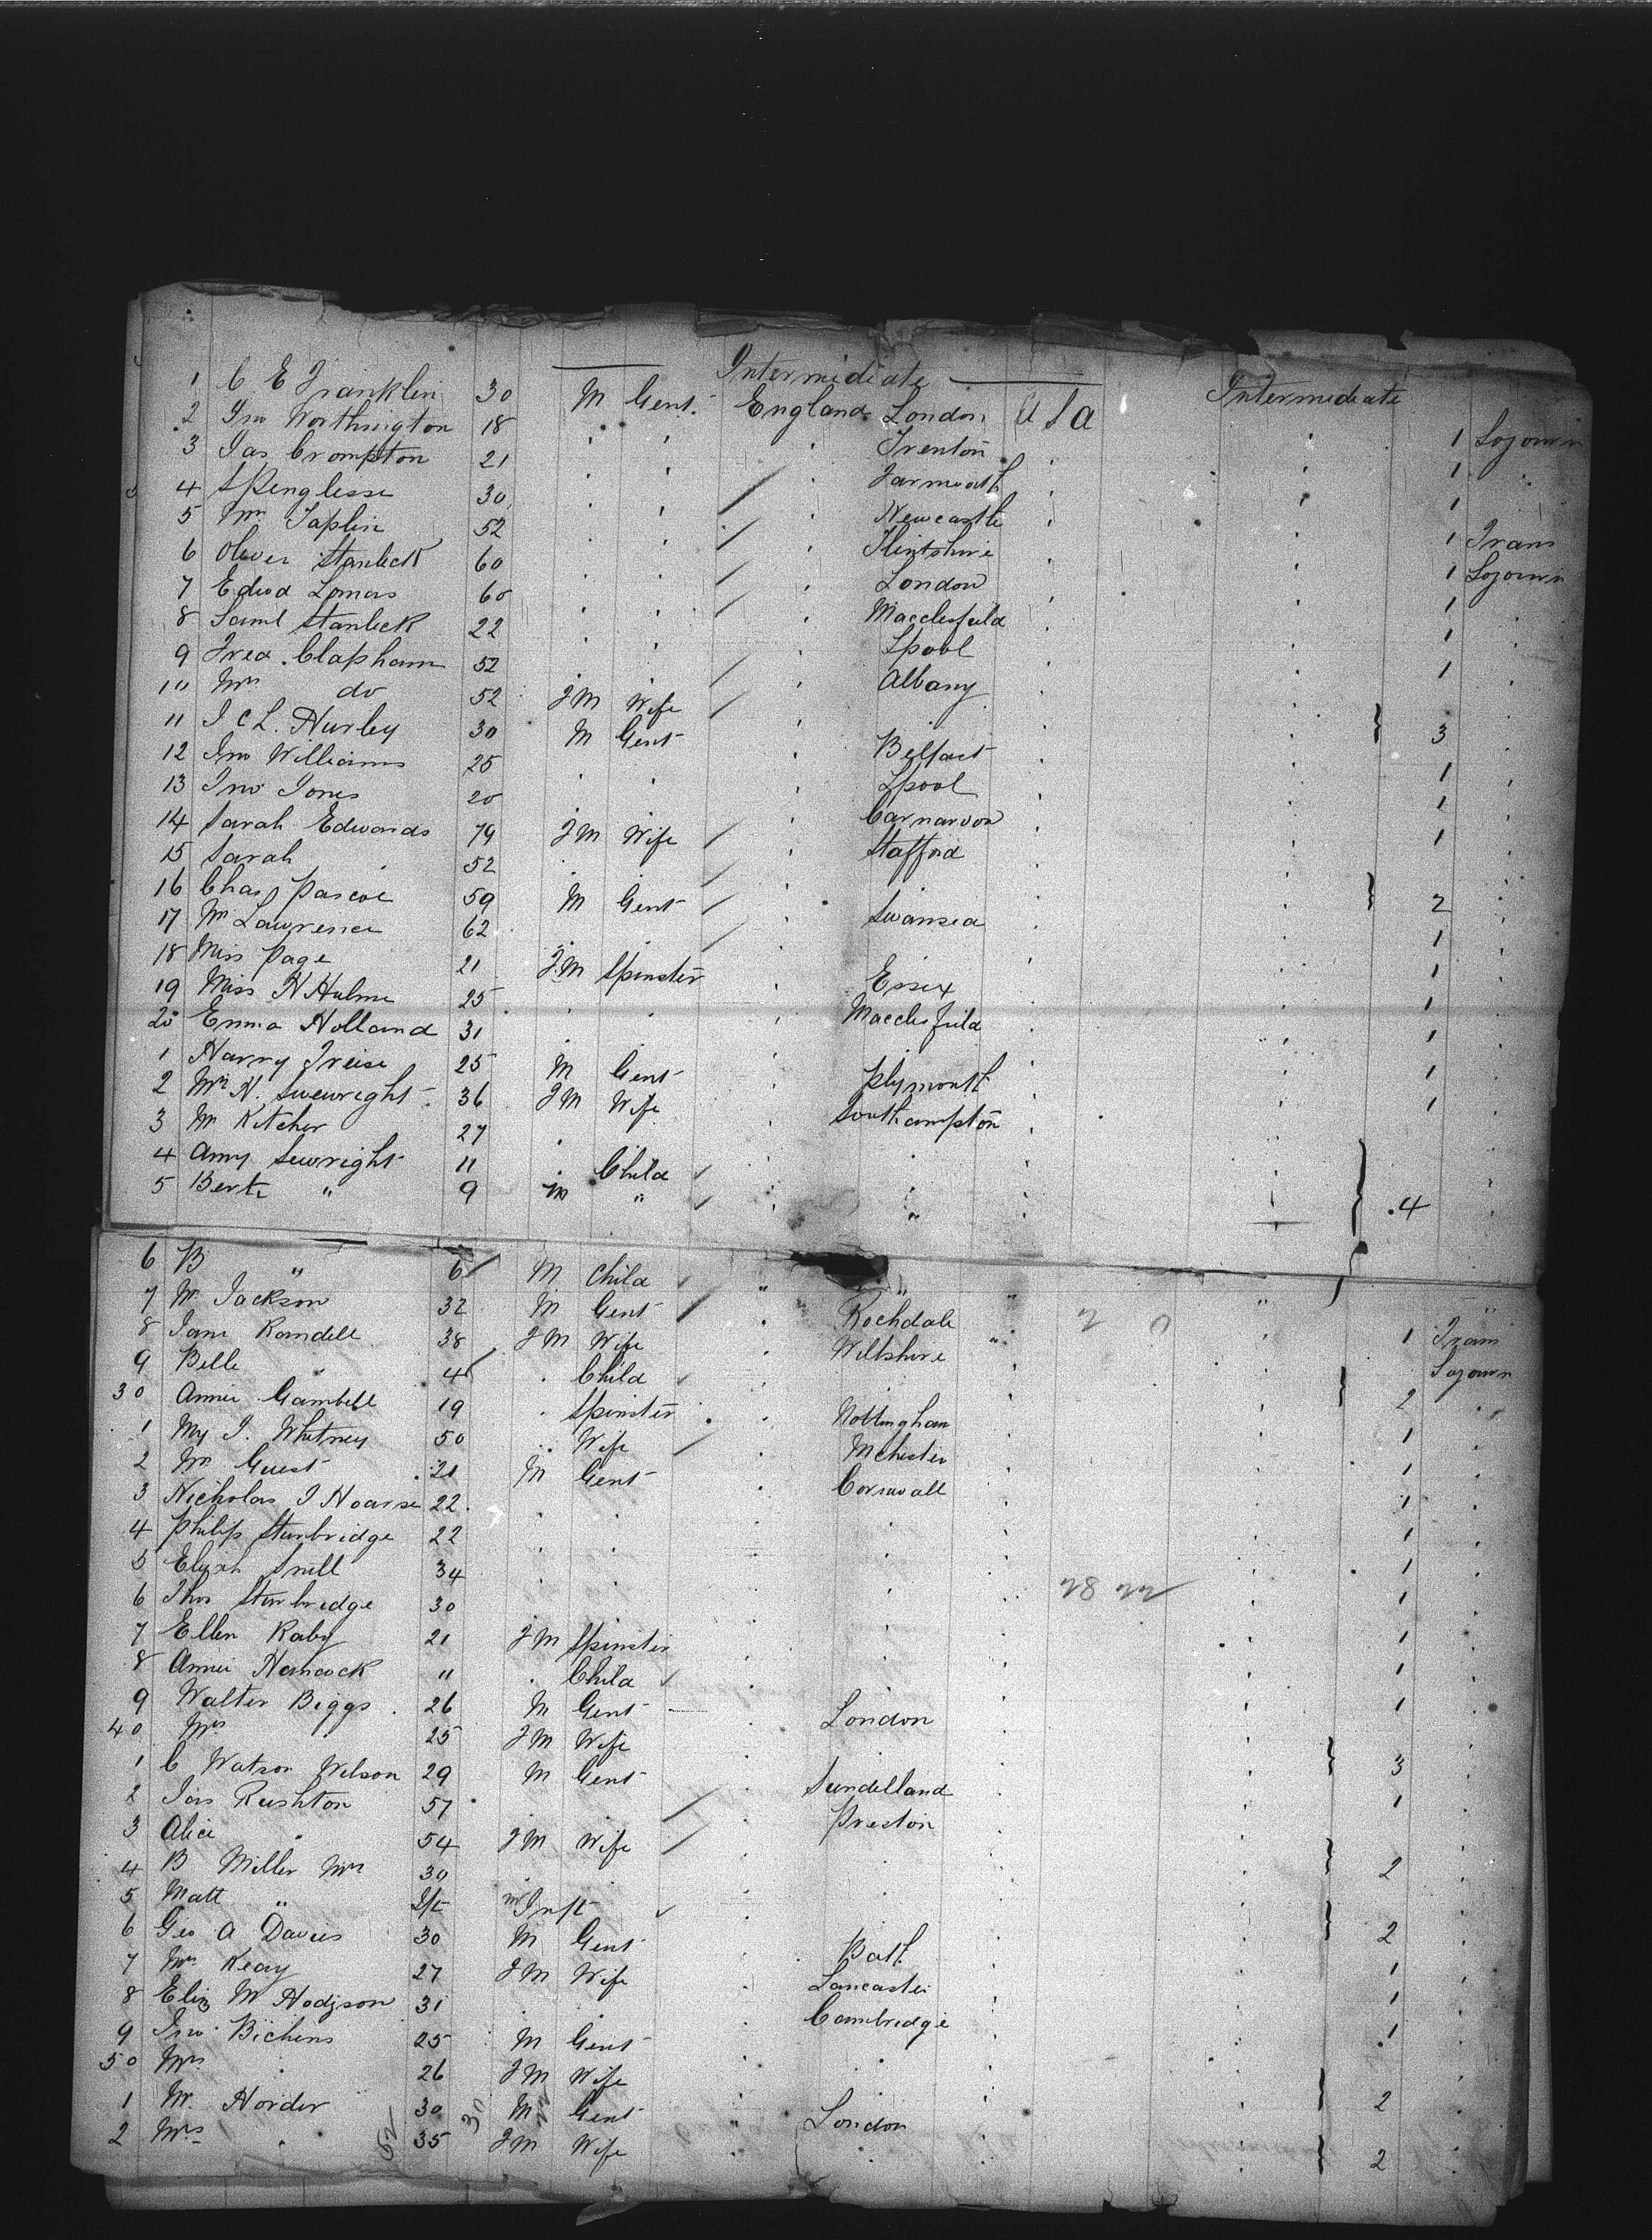 Intermediate Intermediate
1 C E Franklin 30 M Gent. England London U S A 1 Sojourn
2 Jno Worthington 18 Trenton 1
3 Jas Crompton 21 Yarmouth 1
4 30 Newcastle 1 Trans
5 Wm Taplin 52 Flintshire 1 Sojourn
6 Oliver Stanleck 60 London 1
7 Edwd Lomas 60 Macclesfield 1
8 Saml Stanleck 22 Lpool 1
9 Fred. Clapham 52 Albany
10 Mrs do 52 F M Wife } 3
11 J C L. Hurley 30 M Gent Belfast 1
12 Jno Williams 25 Lpool 1
13 Jno Jones 20 Carnarvon 1
14 Sarah Edwards 79 F M Wife Stafford
15 Sarah 52 } 2
16 Chas Pascoe 59 M Gent Swansea 1
17 Wm Lawrence 62 1
18 Miss Page 21 F M Spinster Essex 1
19 Miss H Hulme 25 Macclesfield 1
20 Emma Holland 31 1
1 Harry Treise 25 M Gent Plymouth 1
2 Mrs H. Sivewright 36 F M Wife Southampton
3 M Kitcher 27
4 Amy Sewright 11 Child
5 Berth " 9 M " " } 4
6 B " 6 M Child " "
7 W. Jackson 32 M Gent Rochdale 1 Trans
8 Jane Randell 38 F M Wife Wiltshire Sojourn
9 Belle 4 Child } 2
30 Annie Gambell 19 Spinster Nottingham 1
1 My J. Whitney 50 Wife Mchester 1
2 Wm Guest 21 M Gent Cornwall 1
3 Nicholas J Hoarse 22 1
4 Philip Sturbridge 22 1
5 Elijah Snell 34 1
6 Thos Sturbridge 30 1
7 Ellen Raby 21 F M Spinster 1
8 Annie Hancock 11 Child 1
9 Walter Biggs 26 M Gent London
40 Mrs 25 F M Wife } 3
1 C Watson Wilson 29 M Gent Sunderland 1
2 Jas Rushton 57 Preston
3 Alice 54 F M Wife } 2
4 B Miller Mrs 30
5 Matt " Ift M Inft } 2
6 Geo A Davies 30 M Gent Bath 1
7 Mrs Keay 27 F M Wife Lancaster 1
8 Eliz M Hodgson 31 Cambridge 1
9 Jno Bichens 25 M Gent
50 Mrs 26 F M Wife } 2
1 W. Horder 30 M Gent London
2 Mrs 35 F M Wife } 2